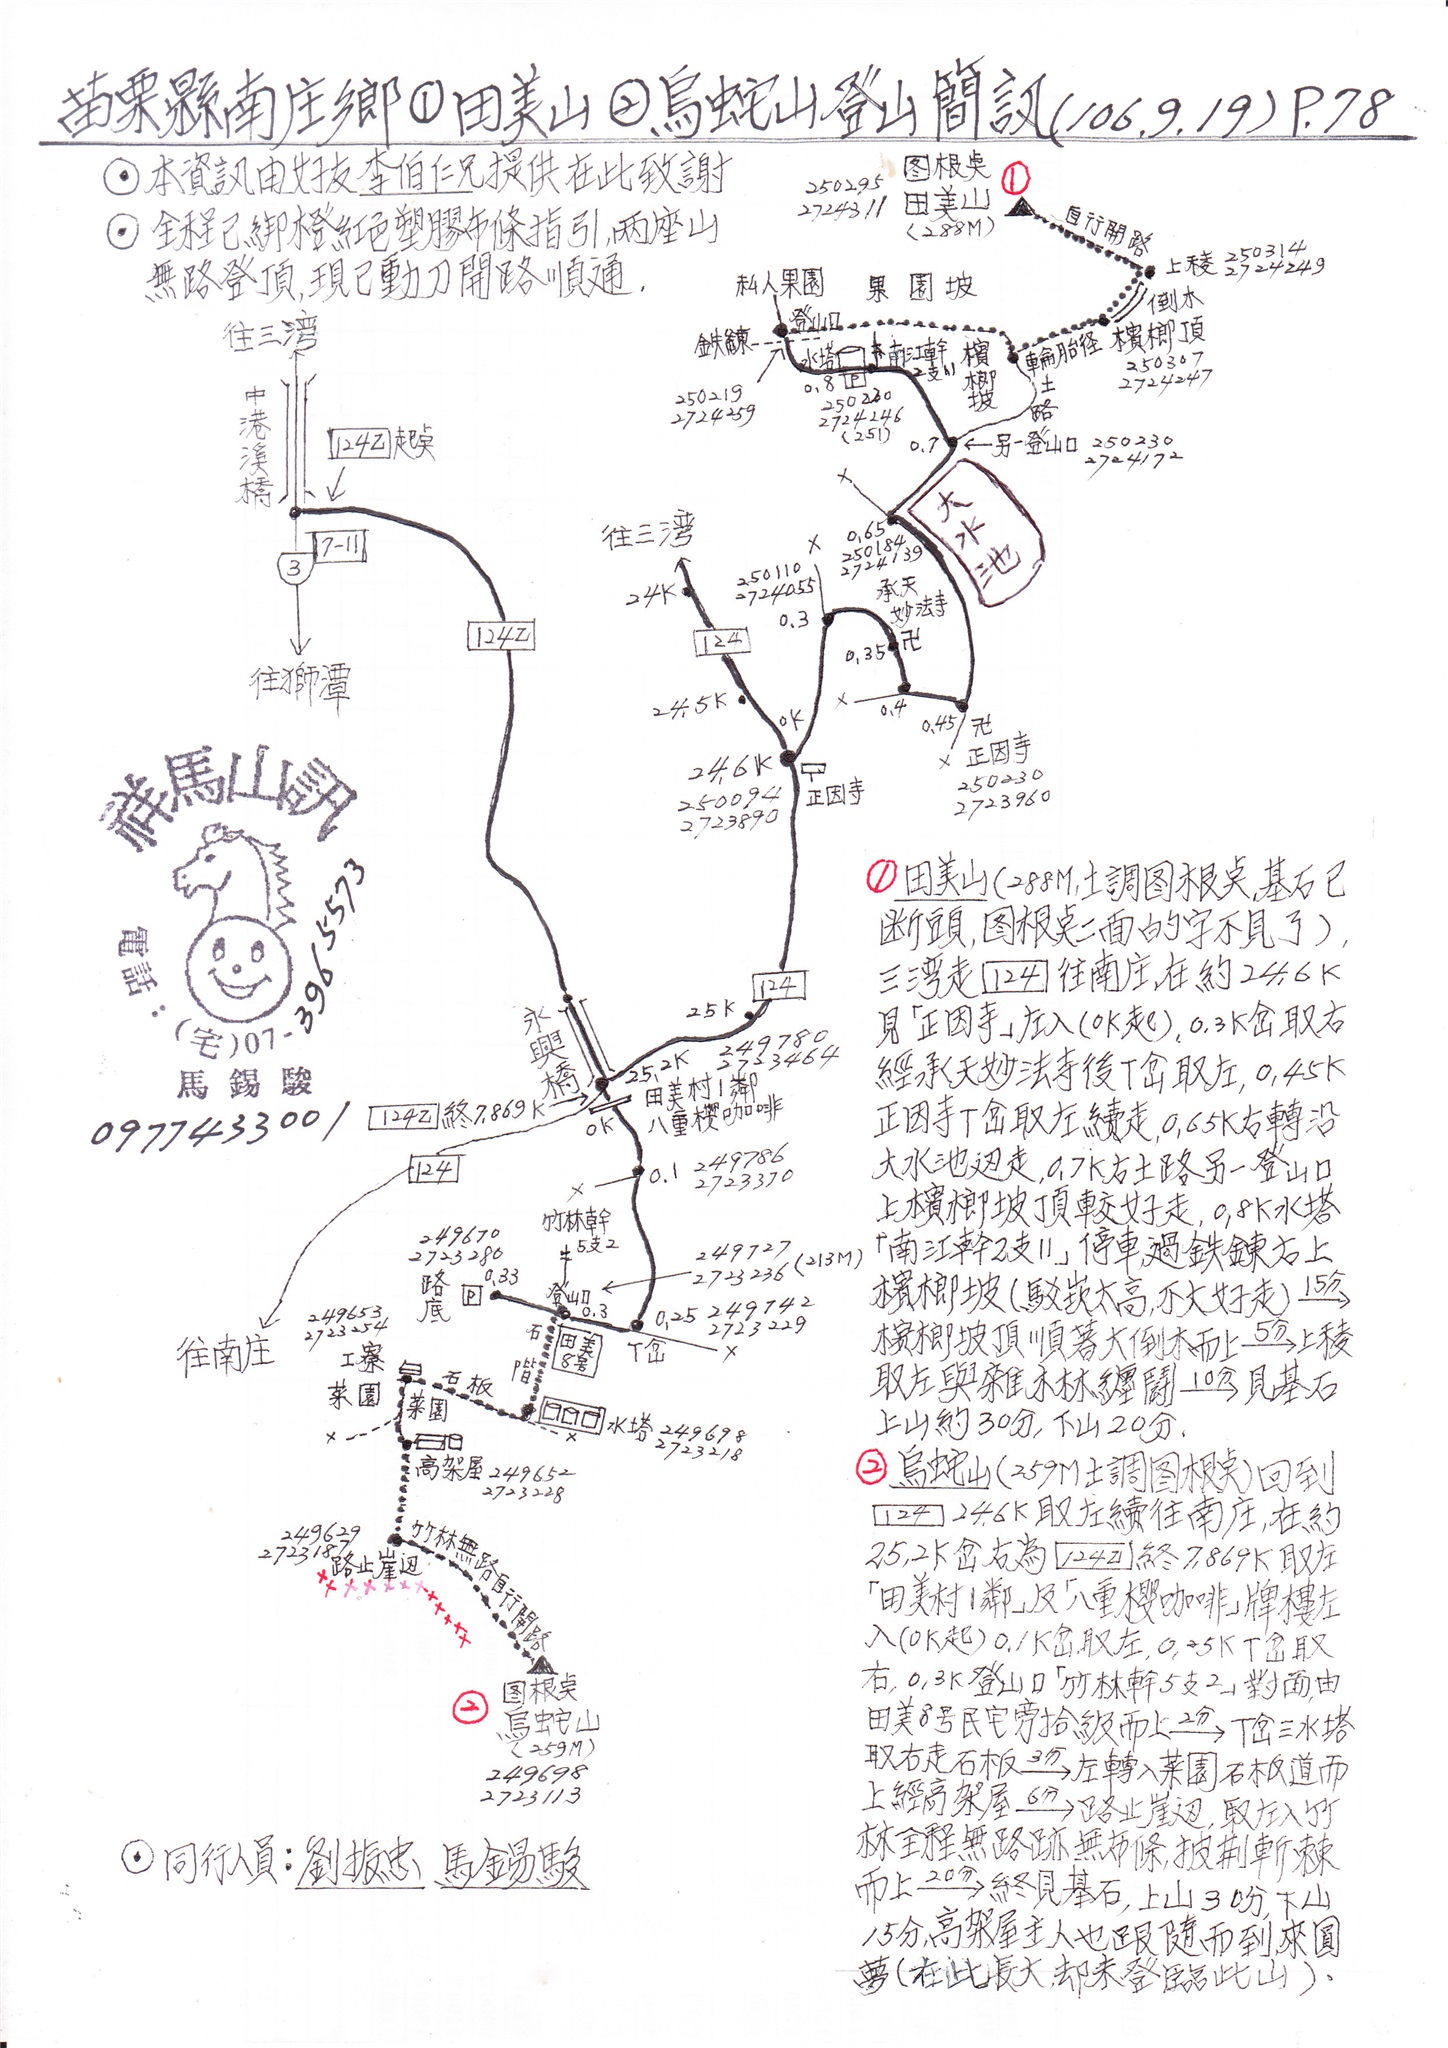 苗栗縣南庄鄉①田美山②烏蛇山登山簡訊(106.9.19) P.78
⊙ 本資訊由好友李伯仁兄提供在此致謝
⊙ 全程已綁橙紅色塑膠布條指引,兩座山
無路登頂,現已動刀開路順通.
图根桌
①
250295
2724311
田美山
(288M)
自行開路
上稜
250314
2724249
倒木
檳榔頂
250307
2724247
輪胎径
土路
私人果園
果園坡
登山口
鉄鍊
水塔
南江幹
2支11
檳榔坡
0.8
P
250219
2724259
250230
2724246
(251)
0.7
←另一登山口
250230
2724172
大水池
0.65
250184
2724139
往三湾
中港溪橋
124乙 起桌
7-11
3
往獅潭
124乙
往三湾
24K
124
24.5K
0K
24.6K
250094
2723890
正因寺
250110
2724055
0.3
承天
妙法寺
卍
0.35
0.4
0.45
卍
正因寺
250230
2723960
祥馬山訊
電話:
(宅)07-3965573
馬錫駿
0977433001
124
25K
永興橋
25.2K
249780
2723464
田美村1鄰
八重櫻咖啡
124乙 終7.869K
0K
124
往南庄
0.1
249786
2723370
竹林幹
5支2
249727
2723236 (213M)
249670
2723280
路底
P
0.33
登山口
0.3
田美
8号
0.25
249742
2723229
T岔
石階
249653
2723254
工寮
菜園
菜園
石板
水塔
249698
2723218
高架屋
249652
2723228
249629
2723187
路止崖辺
竹林無路自行開路
②
图根桌
烏蛇山
(259M)
249698
2723113
① 田美山(288M,土調图根桌,基石已
断頭,图根桌二面的字不見了),
三湾走 124 往南庄,在約24.6K
見「正因寺」左入(0K起),0.3K岔取右
經承天妙法寺後T岔取左,0.45K
正因寺T岔取左續走,0.65K右轉沿
大水池辺走,0.7K右土路另一登山口
上檳榔坡頂較好走,0.8K水塔
「南江幹2支11」停車,過鉄鍊右上
檳榔坡(駁崁太高,不太好走)15分→
檳榔坡頂順著大倒木而上5分→上稜
取左與雜木林纏鬪10分→見基石
上山約30分,下山20分.
② 烏蛇山(259M土調图根桌)回到
124 24.6K取左續往南庄,在約
25.2K岔右為 124乙 終7.869K取左
「田美村1鄰」及「八重櫻咖啡」牌樓左
入(0K起)0.1K岔取左,0.25K T岔取
右,0.3K登山口「竹林幹5支2」對面,由
田美8号民宅旁拾級而上2分→T岔三水塔
取右走石板3分→左轉入菜園石板道而
上經高架屋6分→路止崖辺,取左入竹
林全程無路跡無布條,披荆斬棘
而上20分→終見基石,上山30分,下山
15分,高架屋主人也跟隨而到,來圓
夢(在此長大,却未登臨此山).
⊙ 同行人員:劉振忠 馬錫駿